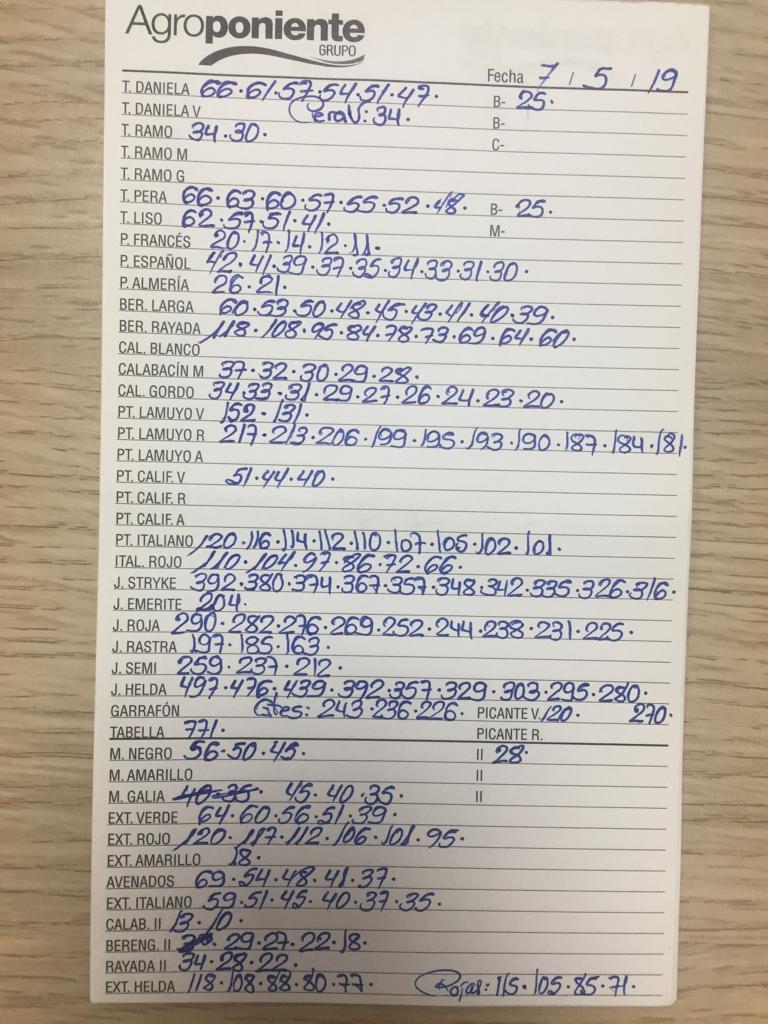 Agroponiente
GRUPO
Fecha 7 / 5 / 19
T. DANIELA 66·61·57·54·51·47· B- 25·
T. DANIELA V PeraV: 34· B-
T. RAMO 34·30· C-
T. RAMO M
T. RAMO G
T. PERA 66·63·60·57·55·52·48· B- 25·
T. LISO 62·57·51·41· M-
P. FRANCÉS 20·17·14·12·11·
P. ESPAÑOL 42·41·39·37·35·34·33·31·30·
P. ALMERÍA 26·21·
BER. LARGA 60·53·50·48·45·43·41·40·39·
BER. RAYADA 118·108·95·84·78·73·69·64·60·
CAL. BLANCO
CALABACÍN M 37·32·30·29·28·
CAL. GORDO 34·33·31·29·27·26·24·23·20·
PT. LAMUYO V 152·131·
PT. LAMUYO R 217·213·206·199·195·193·190·187·184·181·
PT. LAMUYO A
PT. CALIF. V 51·44·40·
PT. CALIF. R
PT. CALIF. A
PT. ITALIANO 120·116·114·112·110·107·105·102·101·
ITAL. ROJO 110·104·97·86·72·66·
J. STRYKE 392·380·374·367·357·348·342·335·326·316·
J. EMERITE 204·
J. ROJA 290·282·276·269·252·244·238·231·225·
J. RASTRA 197·185·163·
J. SEMI 259·237·212·
J. HELDA 497·476·439·392·357·329·303·295·280·
GARRAFÓN Gtes: 243·236·226· PICANTE V. 120· 270·
TABELLA 771· PICANTE R.
M. NEGRO 56·50·45· II 28·
M. AMARILLO II
M. GALIA 40·35· 45·40·35· II
EXT. VERDE 64·60·56·51·39·
EXT. ROJO 120·117·112·106·101·95·
EXT. AMARILLO 18·
AVENADOS 69·54·48·41·37·
EXT. ITALIANO 59·51·45·40·37·35·
CALAB. II 13·10·
BERENG. II 29·27·22·18·
RAYADA II 34·28·22·
EXT. HELDA 118·108·88·80·77· Rojas: 115·105·85·71·